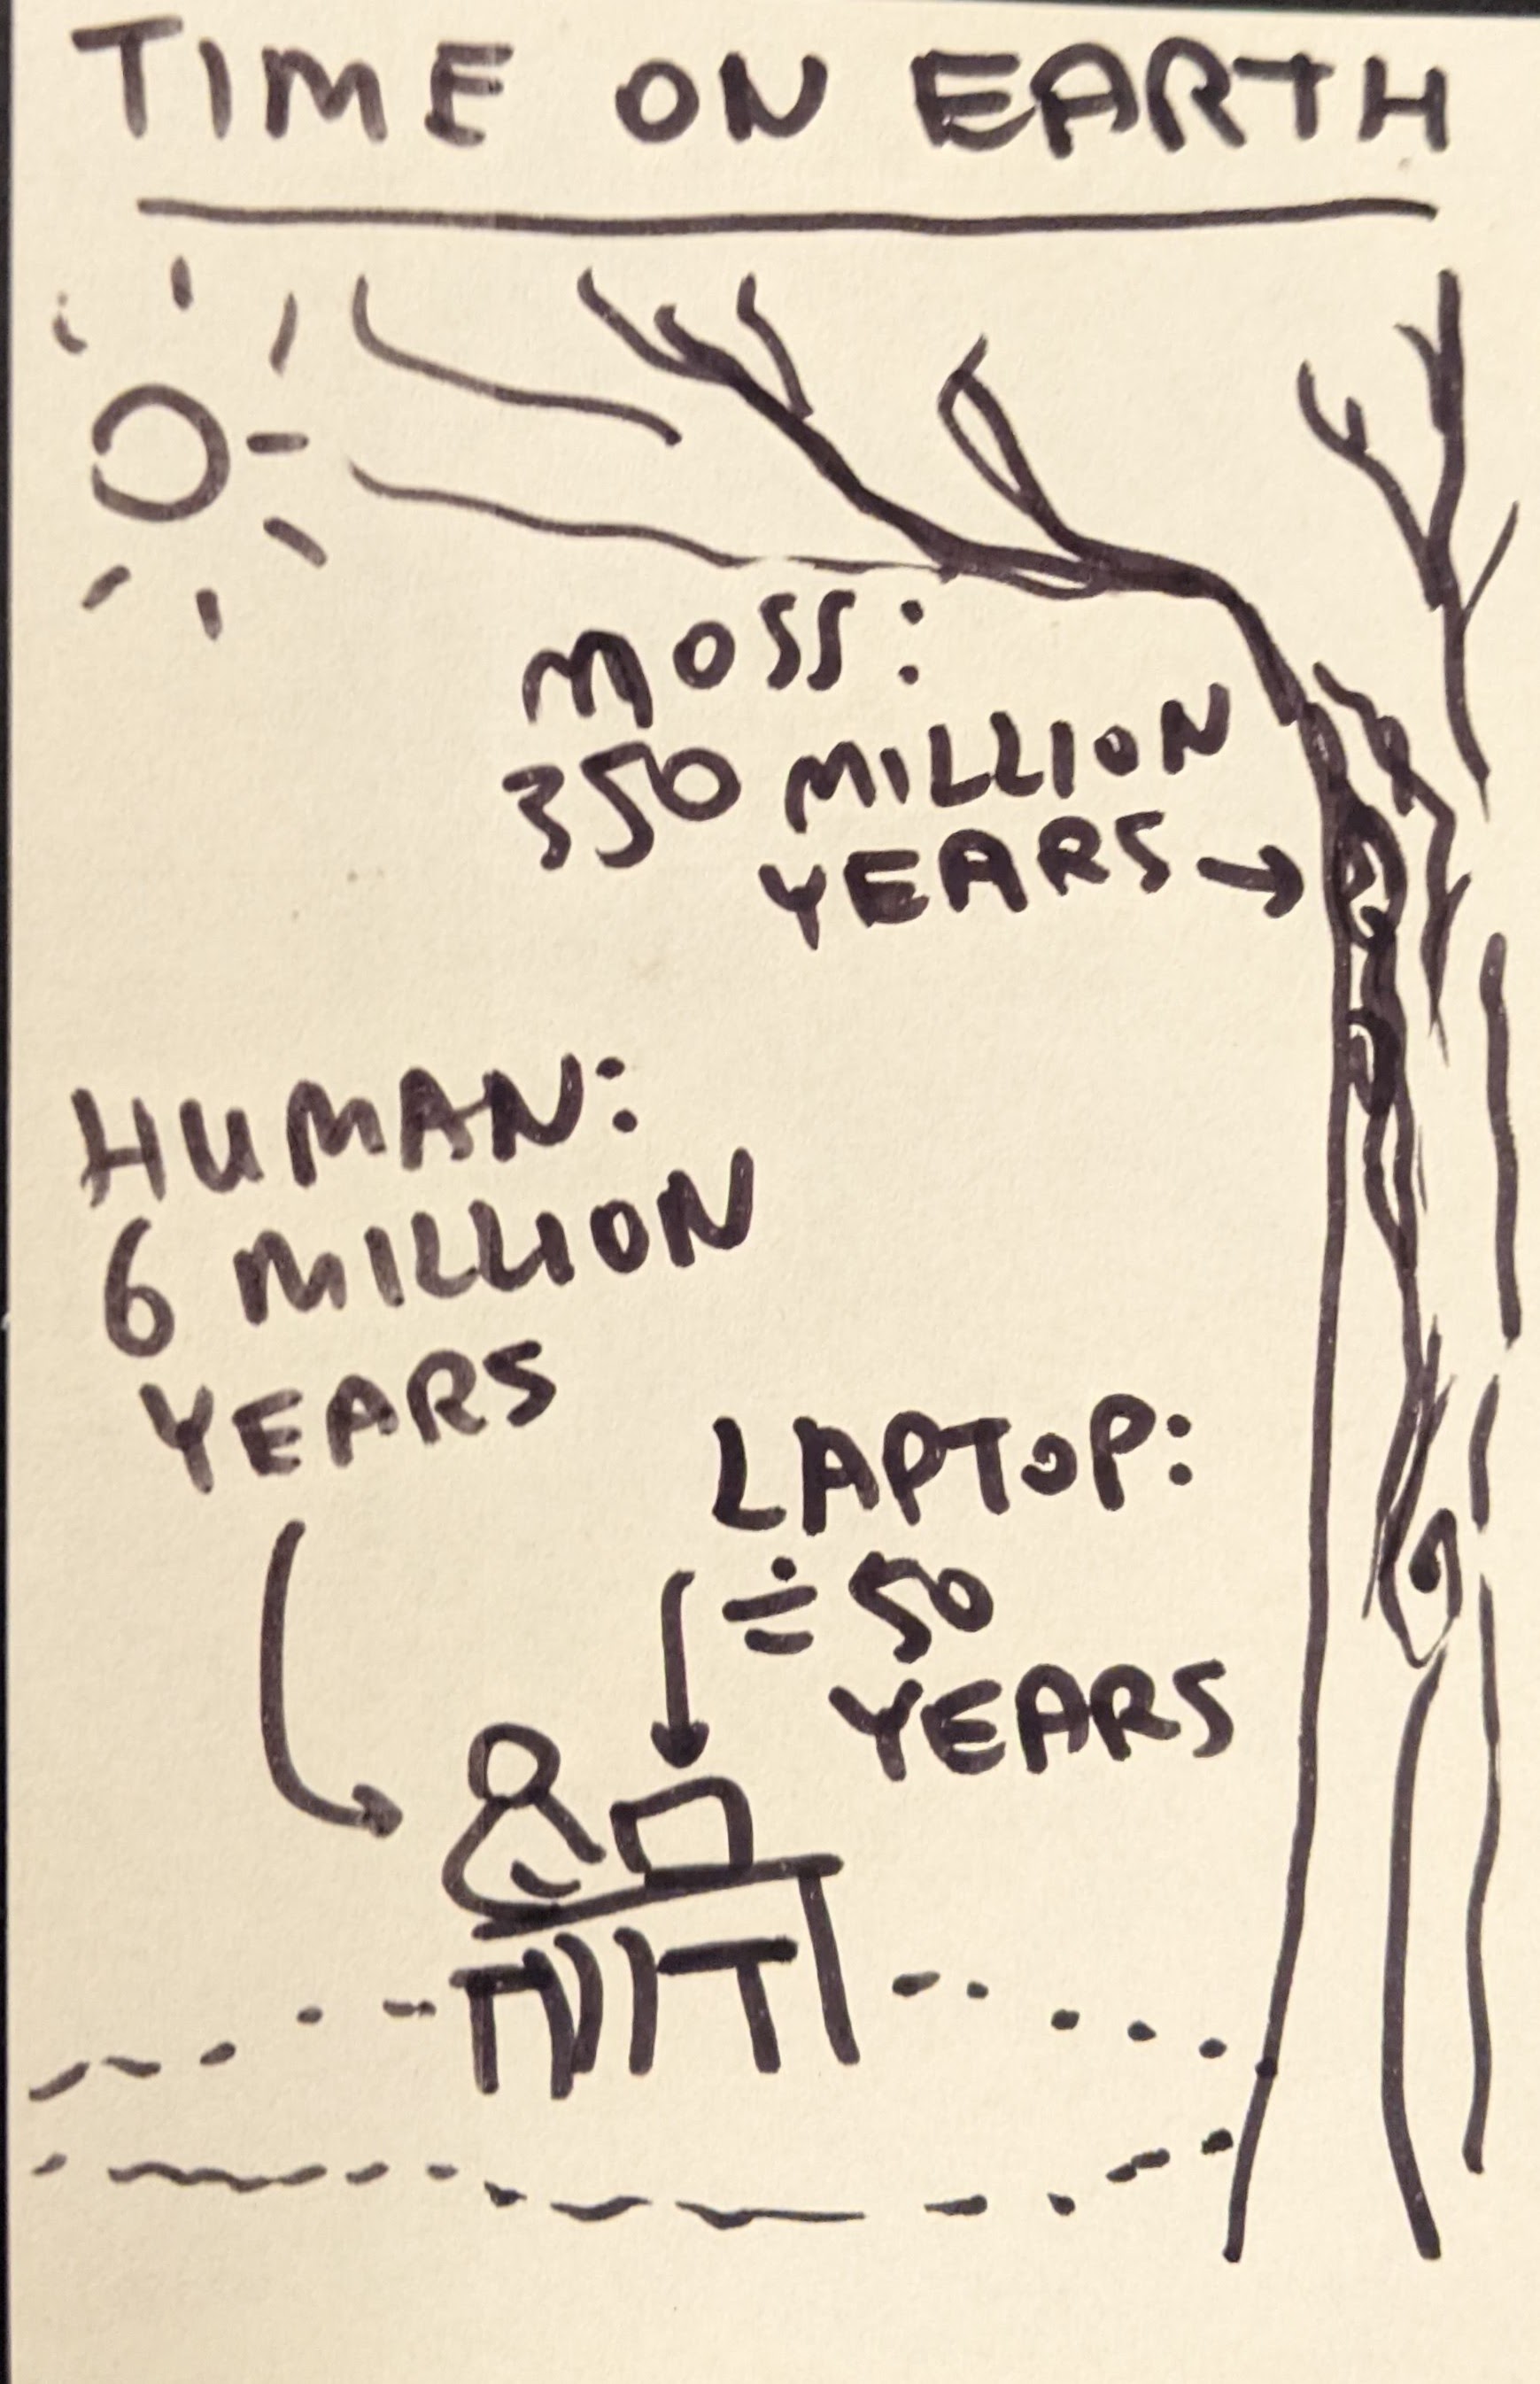 TIME ON EARTH
MOSS:
350 MILLION
YEARS →
HUMAN:
6 MILLION
YEARS
LAPTOP:
≑ 50
YEARS